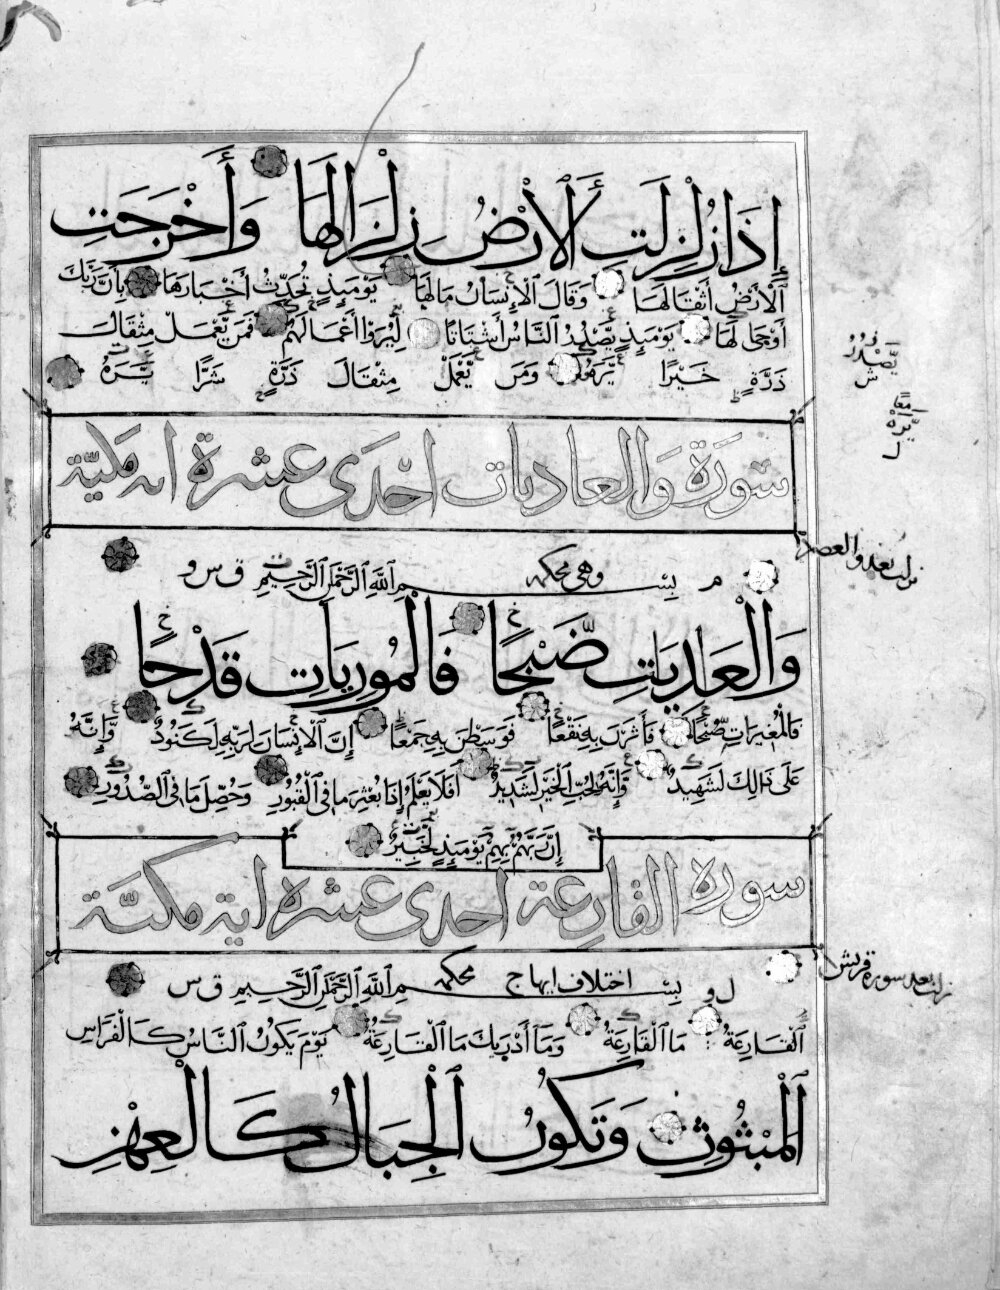 إِذَا زُلْزِلَتِ ٱلْأَرْضُ زِلْزَالَهَا وَأَخْرَجَتِ
ٱلْأَرْضُ أَثْقَالَهَا وَقَالَ ٱلْإِنسَانُ مَا لَهَا يَوْمَئِذٍ تُحَدِّثُ أَخْبَارَهَا بِأَنَّ رَبَّكَ
أَوْحَى لَهَا يَوْمَئِذٍ يَصْدُرُ ٱلنَّاسُ أَشْتَاتًا لِيُرَوْا أَعْمَالَهُمْ فَمَن يَعْمَلْ مِثْقَالَ
ذَرَّةٍ خَيْرًا يَرَهُ وَمَن يَعْمَلْ مِثْقَالَ ذَرَّةٍ شَرًّا يَرَهُ
يَصْدُرُ
ش
معًا
يَرَهْ
ل
سورة والعاديات احدى عشرة اية مكيّة
نزلت بعد والعصر
م بِسْمِ ٱللَّهِ ٱلرَّحْمَٰنِ ٱلرَّحِيمِ وهي محكمة ق س و
وَٱلْعَادِيَاتِ ضَبْحًا فَٱلْمُورِيَاتِ قَدْحًا
فَٱلْمُغِيرَاتِ صُبْحًا فَأَثَرْنَ بِهِ نَقْعًا فَوَسَطْنَ بِهِ جَمْعًا إِنَّ ٱلْإِنسَانَ لِرَبِّهِ لَكَنُودٌ وَإِنَّهُ
عَلَى ذَالِكَ لَشَهِيدٌ وَإِنَّهُ لِحُبِّ ٱلْخَيْرِ لَشَدِيدٌ أَفَلَا يَعْلَمُ إِذَا بُعْثِرَ مَا فِي ٱلْقُبُورِ وَحُصِّلَ مَا فِي ٱلصُّدُورِ
إِنَّ رَبَّهُم بِهِمْ يَوْمَئِذٍ لَخَبِيرٌ
سورة القارعة احدى عشرة اية مكيّة
نزلت بعد سورة قريش
ل و بِسْمِ ٱللَّهِ ٱلرَّحْمَٰنِ ٱلرَّحِيمِ اختلاف ايهاج محكمة ق س
ٱلْقَارِعَةُ مَا ٱلْقَارِعَةُ وَمَا أَدْرَىكَ مَا ٱلْقَارِعَةُ يَوْمَ يَكُونُ ٱلنَّاسُ كَٱلْفَرَاشِ
ٱلْمَبْثُوثِ وَتَكُونُ ٱلْجِبَالُ كَٱلْعِهْنِ